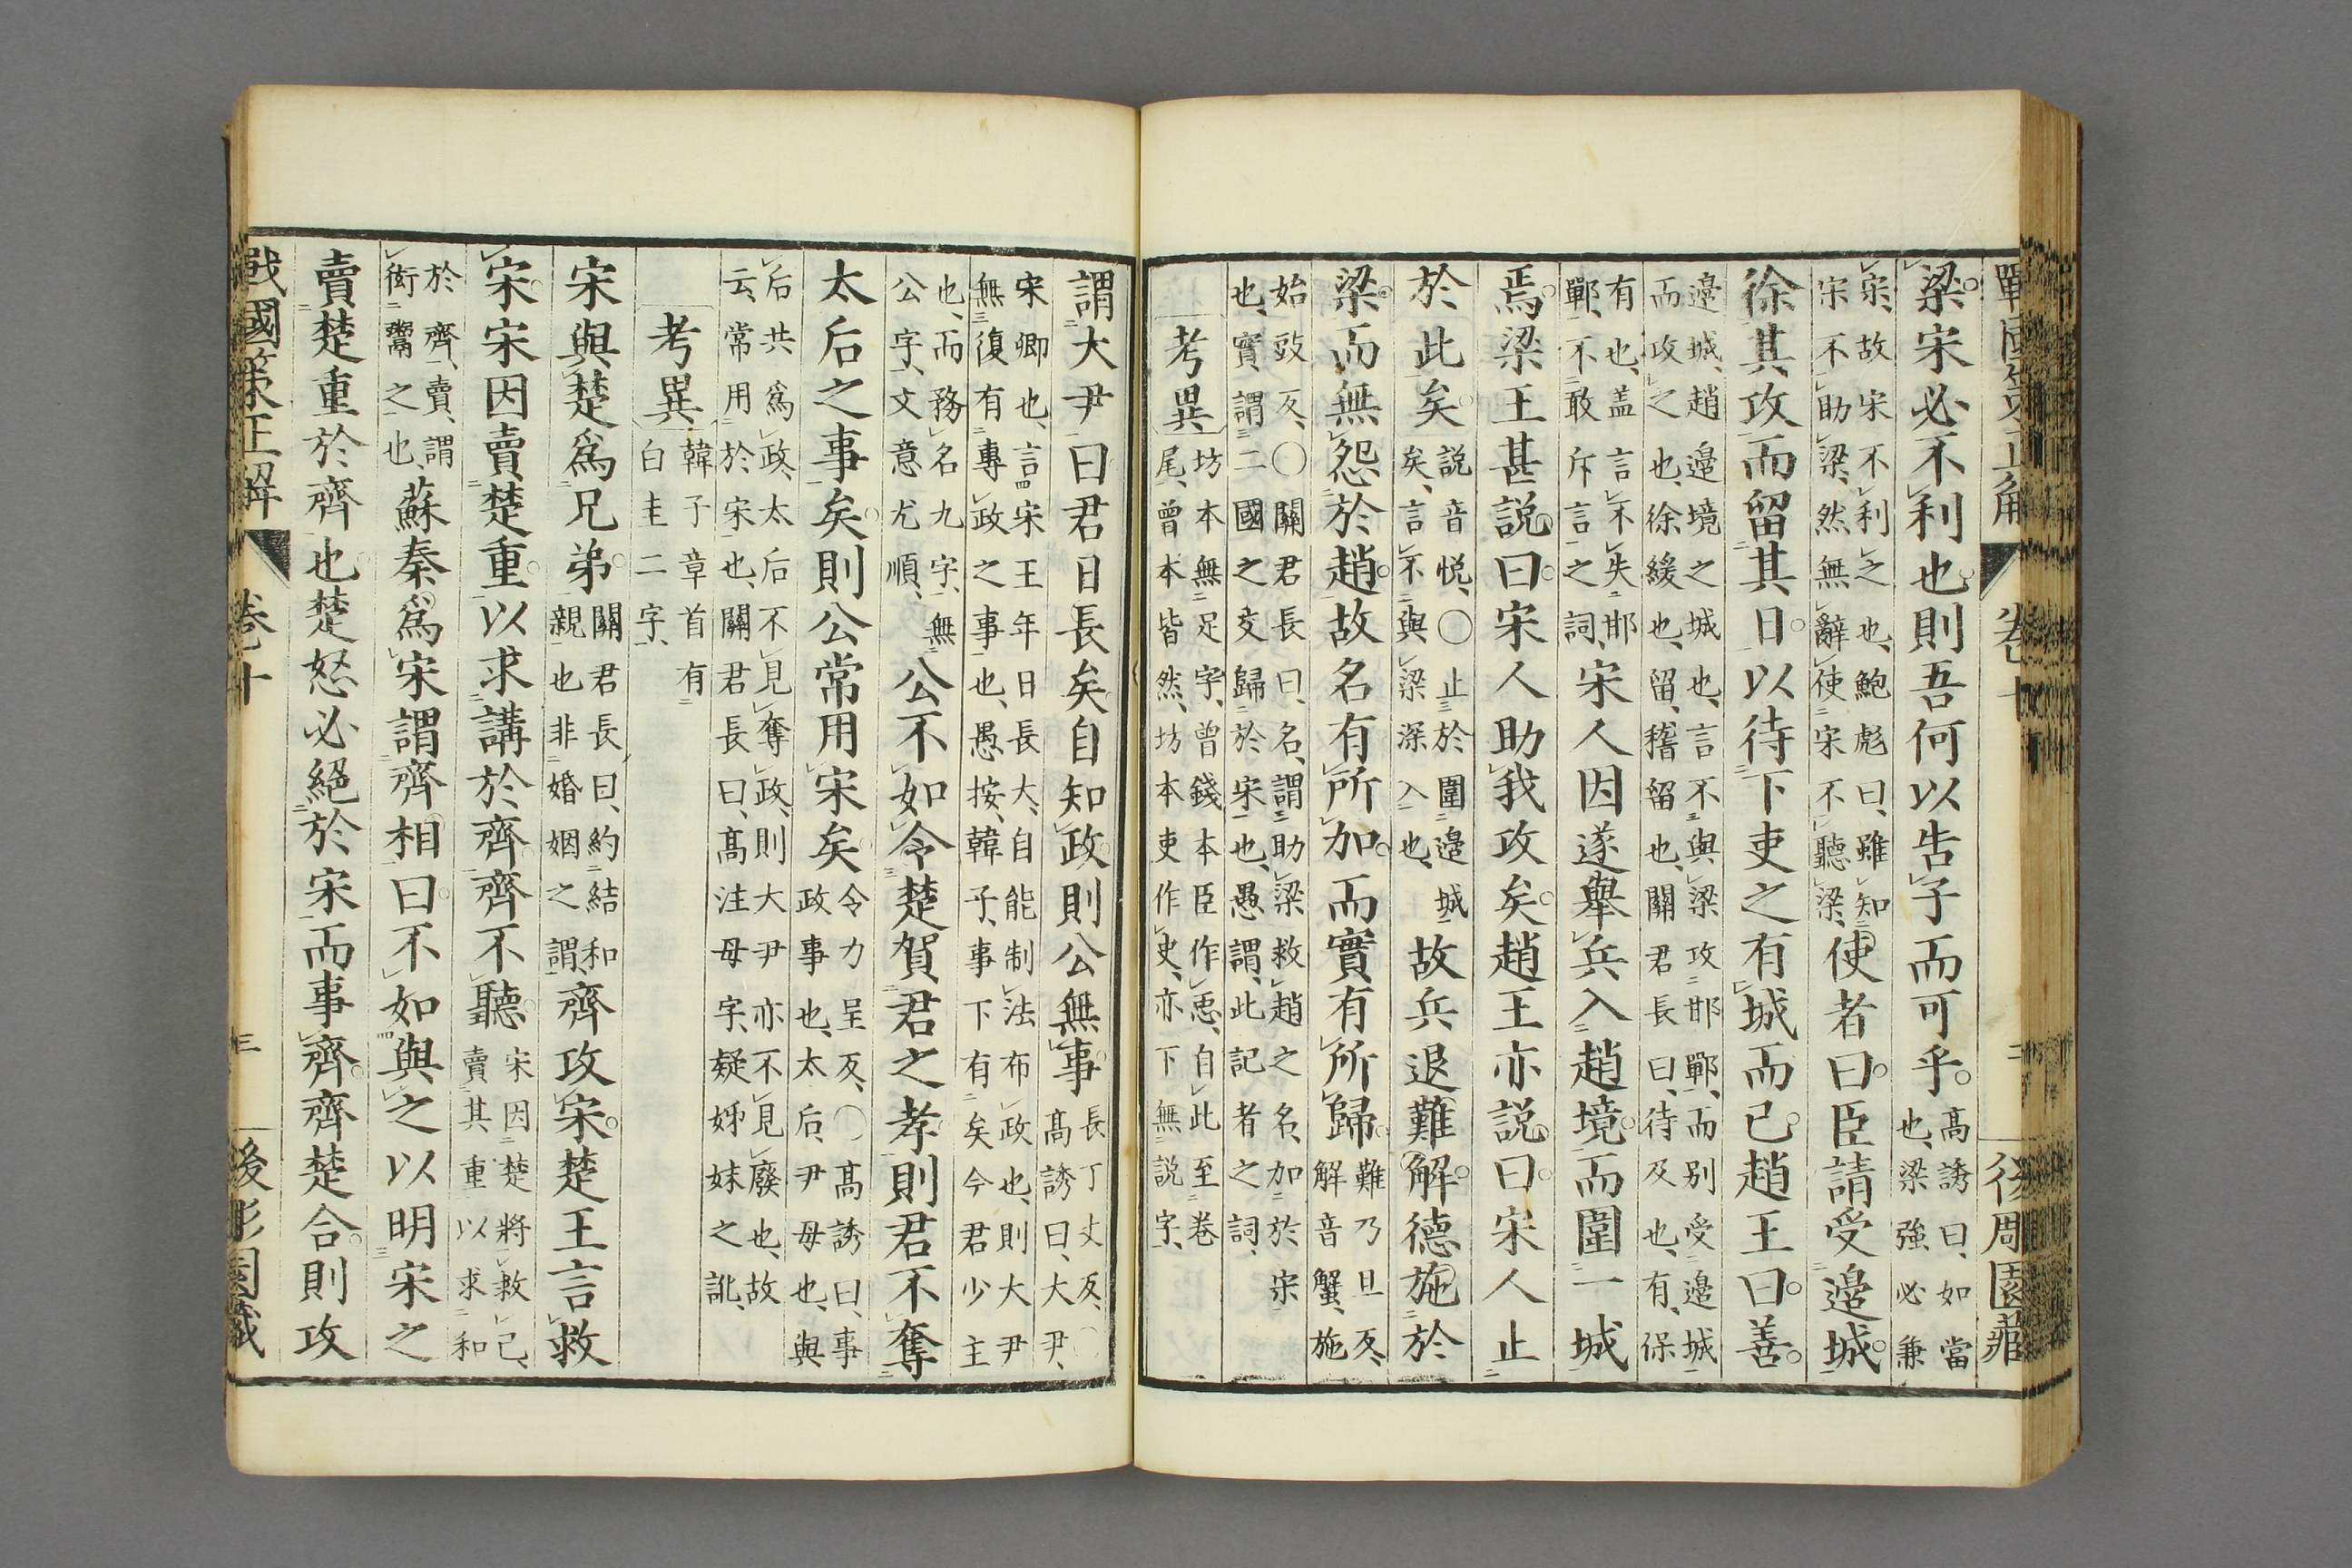 戰國策正解 卷十 二 後彫園藏
梁宋必不利也則吾何以告子而可乎
高誘曰、如當
也、梁強必兼
宋、故宋不利之也、鮑彪曰、雖知
宋不助梁、然無辭使宋不聽梁、
使者曰臣請受邊城
徐其攻而留其日以待下吏之有城而已趙王曰善
邊城、趙邊境之城也、言不與梁攻邯鄲、而别受邊城
而攻之也、徐緩也、留、稽留也、關君長曰、待及也、有、保
有也、盖言不失邯
鄲、不敢斥言之詞、
宋人因遂舉兵入趙境而圍一城
焉梁王甚説曰宋人助我攻矣趙王亦説曰宋人止
於此矣
説音悦、〇止於圍邊城
矣、言不與梁深入也、
故兵退難解德施於
梁而無怨於趙故名有所加而實有所歸
難乃旦反、
解音蟹、施
始豉反、〇關君長曰、名、謂助梁救趙之名、加於宋
也、實、謂二國之交歸於宋也、愚謂、此記者之詞、
考異
坊本無足字、曾錢本臣作𢘑、自此至卷
尾、曾本皆然、坊本吏作史、亦下無説字、
謂大尹曰君日長矣自知政則公無事
長丁丈反、〇
高誘曰、大尹、
宋卿也、言宋王年日長大、自能制法布政也、則大尹
無復有專政之事也、愚按、韓子、事下有矣今君少主
也、而務名九字、無
公字、文意尤順、
公不如令楚賀君之孝則君不奪
太后之事矣則公常用宋矣
令力呈反、〇高誘曰、事
政事也、太后、尹母也、與
后共爲政、太后不見奪政、則大尹亦不見廢也、故
云、常用於宋也、關君長曰、高注母字、疑姊妹之訛、
考異
韓子章首有
白圭二字、
宋與楚爲兄弟
關君長曰、約結和
親也非婚姻之謂、
齊攻宋楚王言救
宋宋因賣楚重以求講於齊齊不聽
宋因楚將救己、
賣其重以求和
於齊、賣、謂
衒鬻之也、
蘇秦爲宋謂齊相曰不如與之以明宋之
賣楚重於齊也楚怒必絶於宋而事齊齊楚合則攻
戰國策正解 卷十 三 後彫園藏